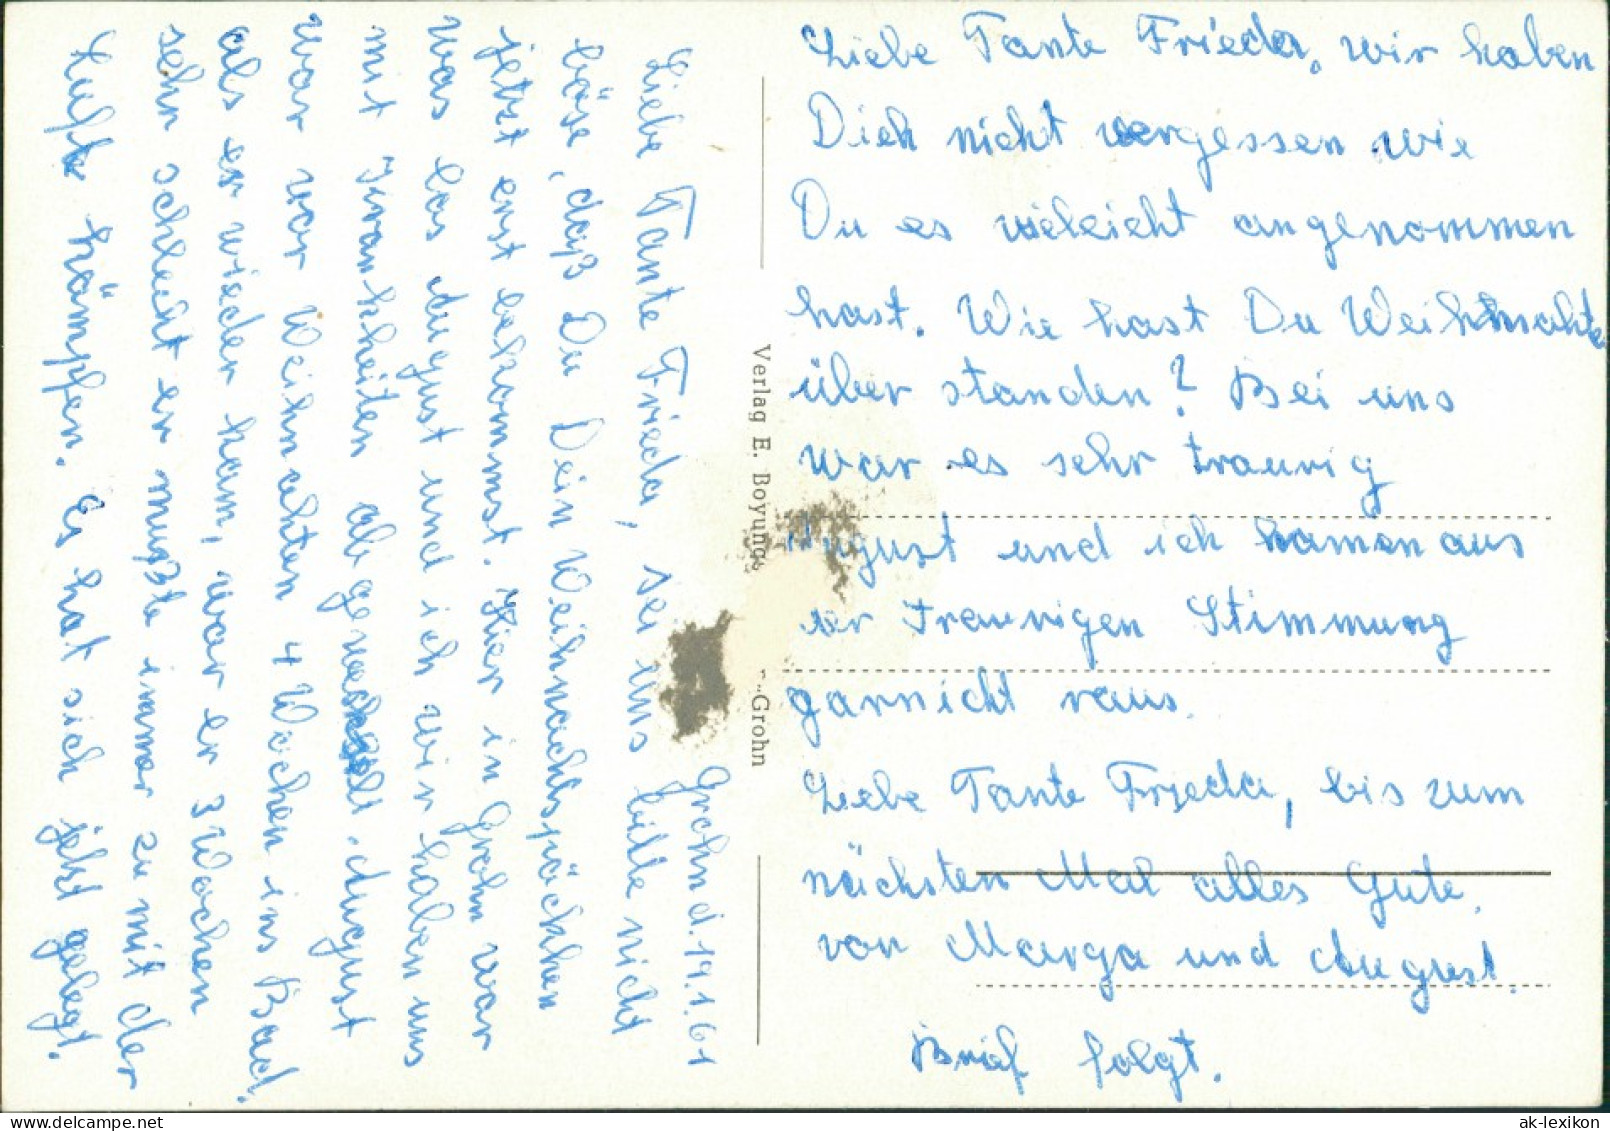 Grohn d. 19.1.61
Liebe Tante Frieda, sei uns bitte nicht
böse, daß Du Dein Weihnachtspäckchen
jetzt erst bekommst. Hier in Grohn war
was los August und ich wir haben uns
mit Krankheiten abgewechselt. August
war vor Weihnachten 4 Wochen ins Bad.
als er wieder kam, war er 3 Wochen
sehn schlecht er mußte immer zu mit der
Lufte kämpfen. Es hat sich jetzt gelegt.
Liebe Tante Frieda, wir haben
Dich nicht vergessen wie
Du es vieleicht angenommen
hast. Wie hast Du Weihnachten
über standen? Bei uns
war es sehr traurig
August und ich kamen aus
der Traurigen Stimmung
garnicht raus.
Liebe Tante Frieda, bis zum
nächsten Mal alles Gute.
von Marga und August.
Brief folgt.
Verlag E. Boyung, -Grohn
ak-lexikon